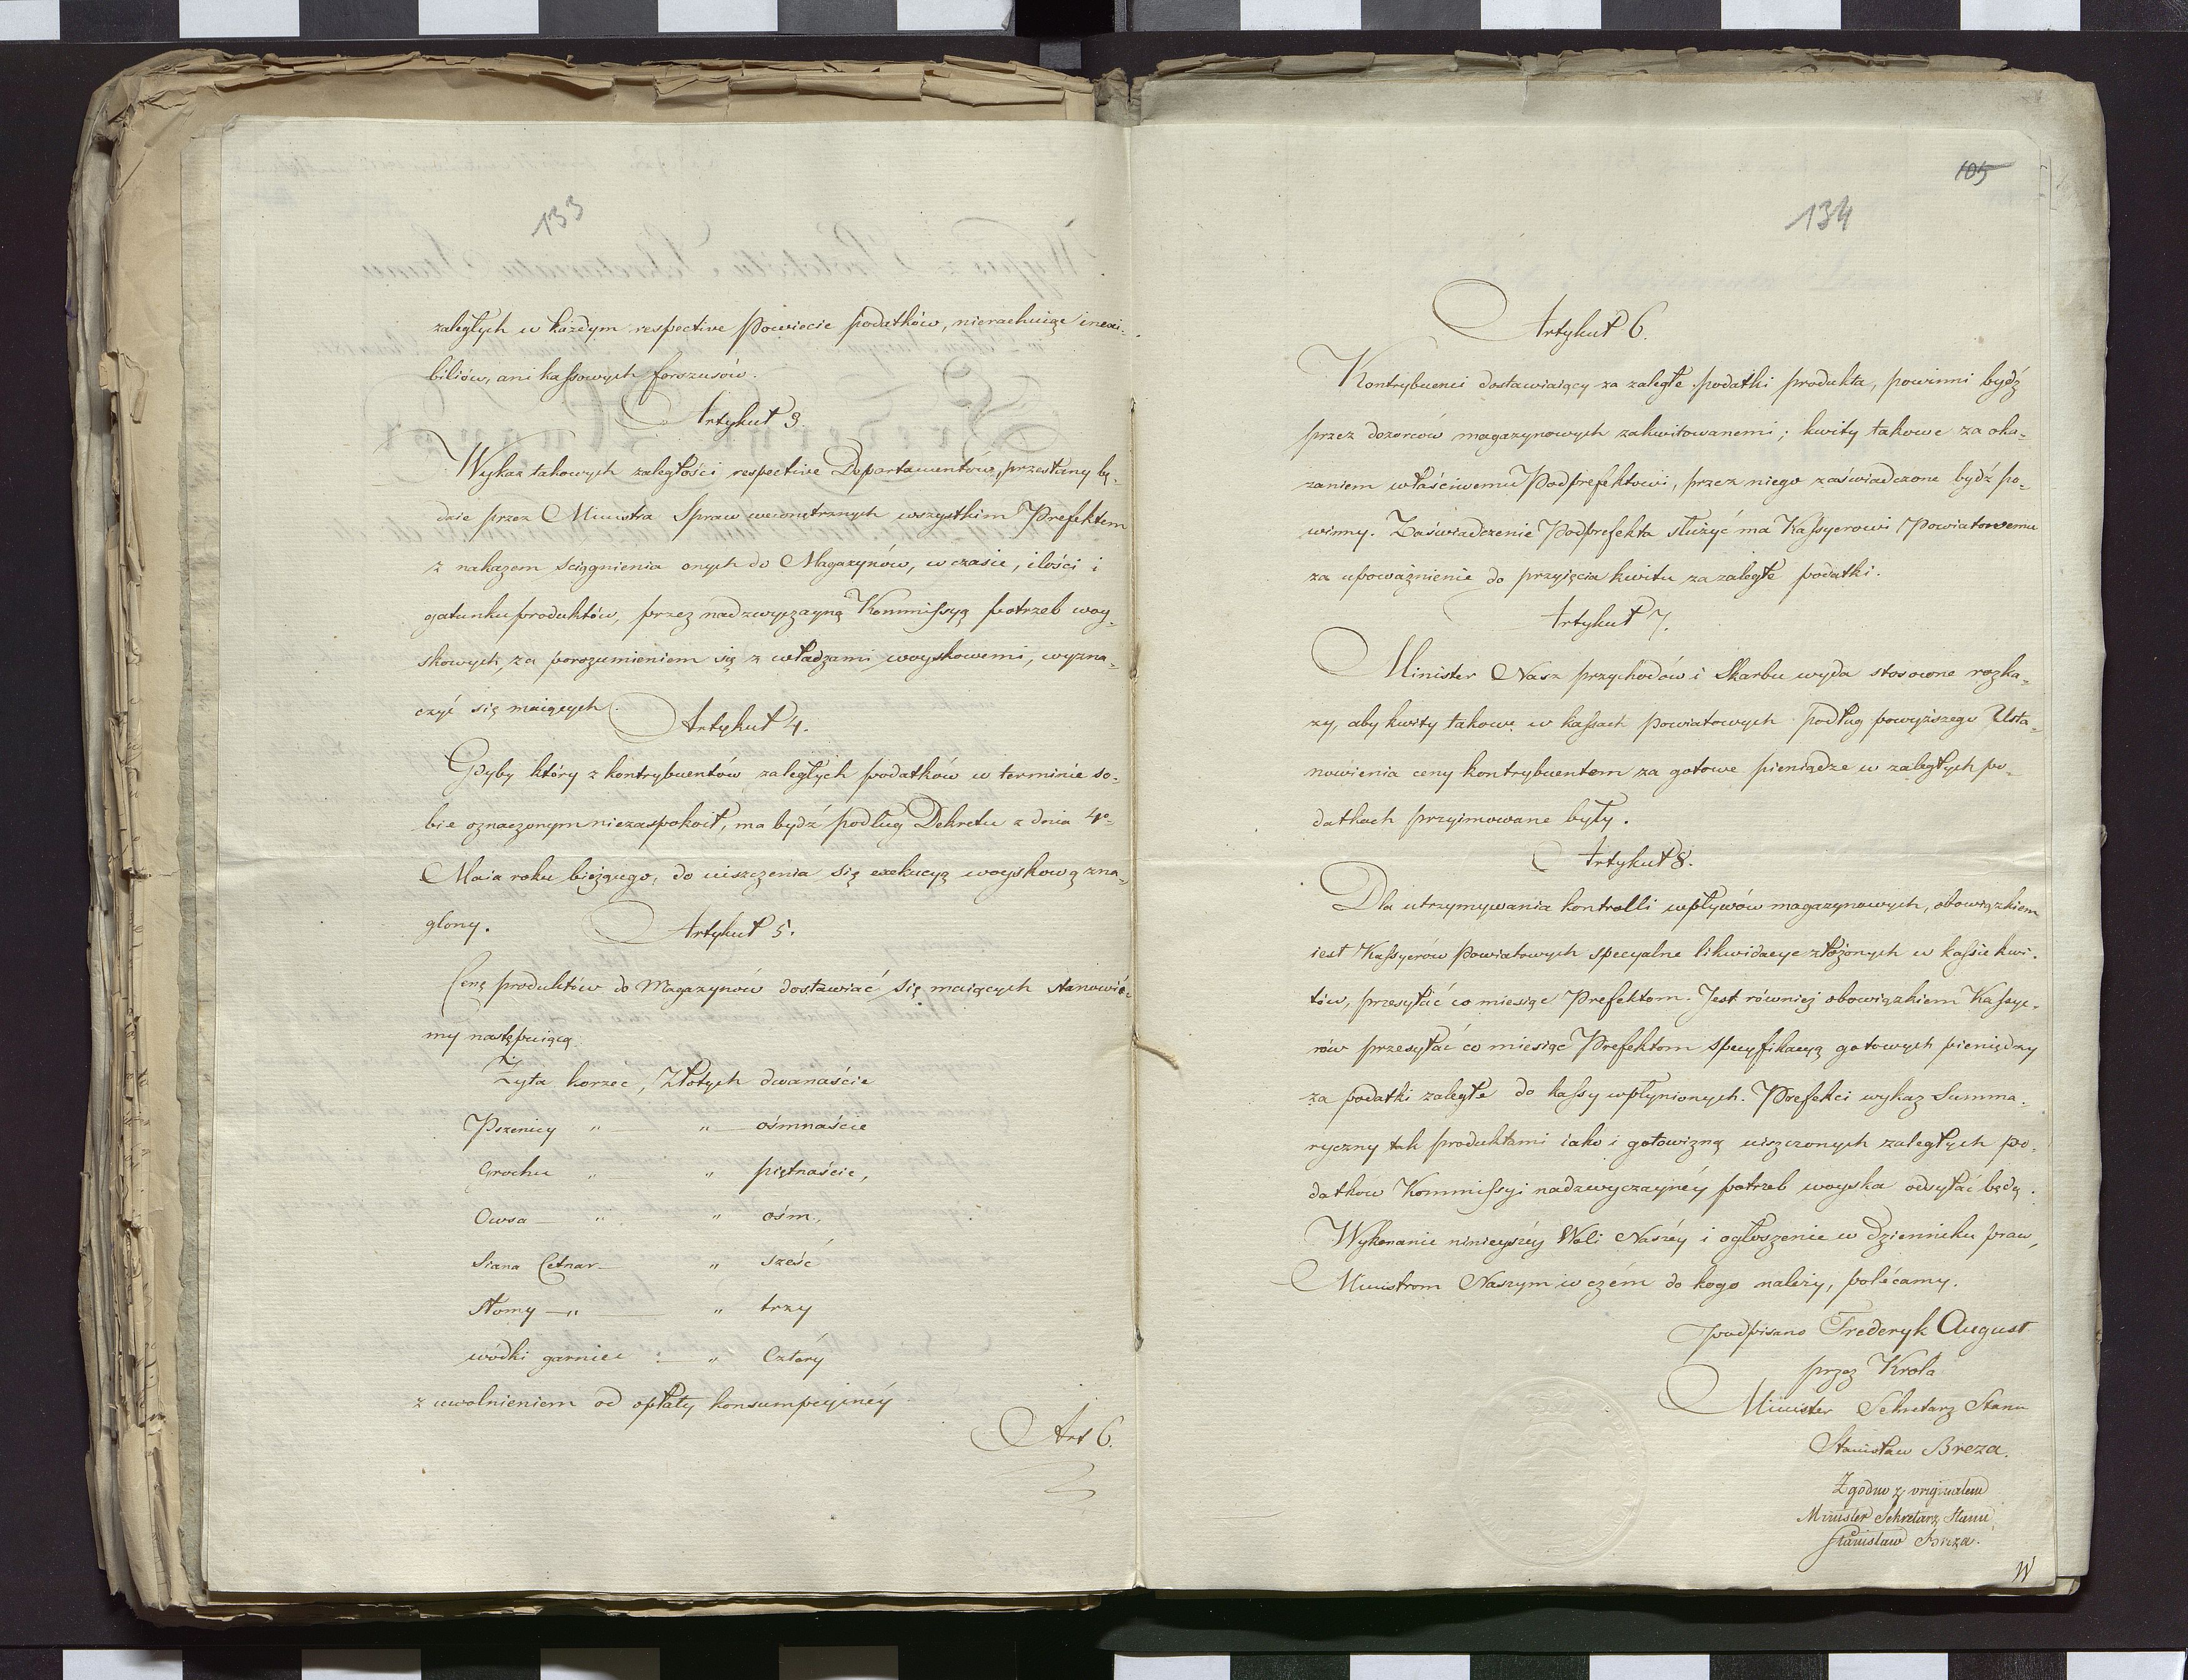 133
zaległych w każdym respective Powiecie podatków, nierachuiąc inexi-
biliów, ani kassowych forszusów.
Artykuł 3.
Wykaz takowych zaległości respective Departamentów, przesłany bę-
dzie przez Ministra Spraw wewnętrznych wszystkim Prefektom
z nakazem ściągnienia onych do Magazynów, w czasie, ilości i
gatunku produktów, przez nadzwyczayną Kommissyą potrzeb woy-
skowych, za porozumieniem się z władzami woyskowemi, wyzna-
czyć się maiących.
Artykuł 4.
Gdyby który z kontrybuentów zaległych podatków w terminie so-
bie oznaczonym niezaspokoił, ma bydź podług Dekretu z dnia 4º
Maia roku bieżącego, do uiszczenia się exekucyą woyskową zna-
glony.
Artykuł 5.
Cenę produktów do Magazynów dostawiać się maiących stanowić-
my następuiącą:
Żyta korzec, Złotych dwanaście
Pszenicy " — " — ośmnaście
Grochu " " piętnaście,
Owsa — " " ośm.,
Siana Cetnar — " sześć
Słomy — " — " trzy
wódki garniec : — " Cztéry
z uwolnieniem od opłaty konsumpcyjnéy
Art 6.
105
134
Artykuł 6.
Kontrybuenci dostawiaiący za zaległe podatki produkta, powinni bydź
przez dozorców magazynowych zakwitowanemi; kwity takowe za oka-
zaniem właściwemu Podprefektowi, przez niego zaświadczone bydź po-
winny. Zaświadczenie Podprefekta służyć ma Kassyerowi Powiatowemu
za upoważnienie do przyięcia kwitu za zaległe podatki.
Artykuł 7.
Minister Nasz przychodów i Skarbu wyda stosowne rozka-
zy, aby kwity takowe w kassach powiatowych podług powyższego Usta-
nowienia ceny kontrybuentom za gotowe pieniądze w zaległych po-
datkach przyimowane były.
Artykuł 8.
Dla utrzymywania kontrolli wpływów magazynowych, obowiązkiem
iest Kassyerów Powiatowych specyalne likwidacye złożonych w kassie kwi-
tów, przesyłać co miesiąc Prefektom. Jest równiej obowiązkiem Kassye-
rów przesyłać co miesiąc Prefektom specyfikacyą gotowych pieniędzy
za podatki zaległe do kassy wpłynionych. Prefekci wykaz Summa-
ryczny tak produktami iako i gotowizną uiszczonych zaległych po-
datków Kommissyi nadzwyczaynéy potrzeb woyska odsyłać będą.
Wykonanie ninieyszéy Woli Naszéy i ogłoszenie w dzienniku praw,
Ministrom Naszym w czém do kogo należy, polécamy.
podpisano Frederyk August
przez Króla
Minister Sekretarz Stanu
Stanisław Breza.
Zgodno z originałem
Minister Sekretarz Stanu
Stanisław Breza.
W